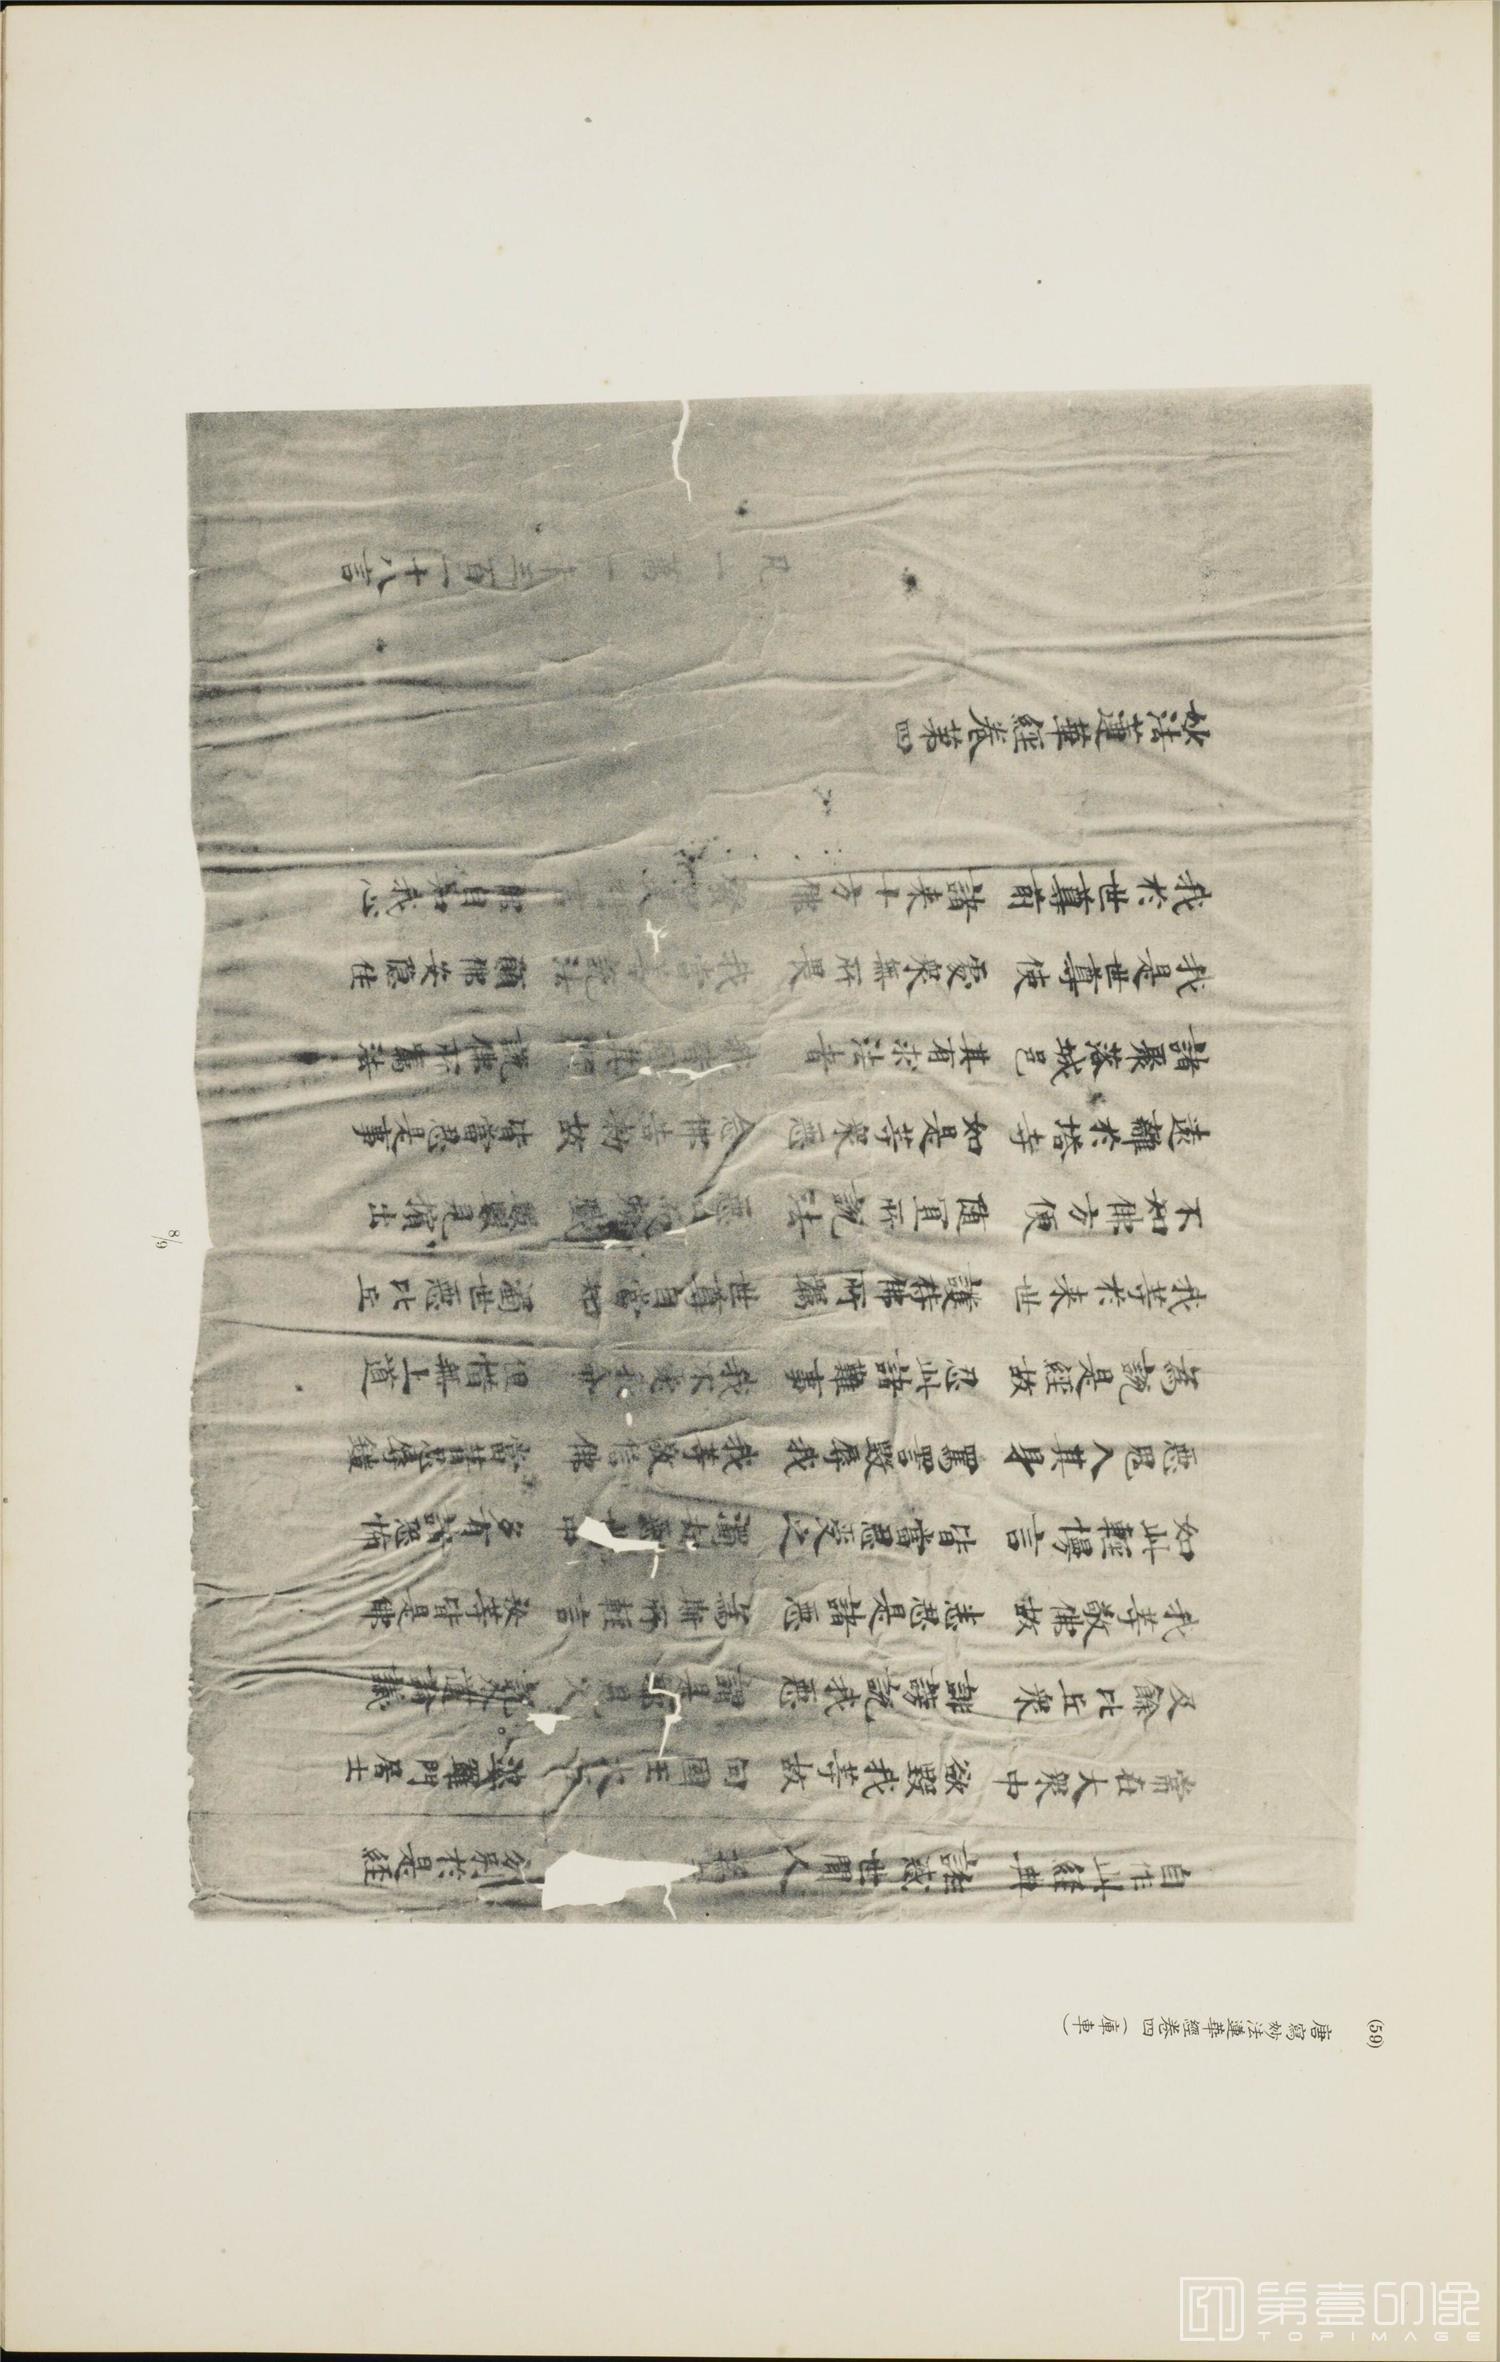 (59)
唐寫妙法蓮華經卷四(庫車)
自作此經典 誑惑世間人 分別於是經
常在大衆中 欲毀我等故 向國王大 婆羅門居士
及餘比丘衆 誹謗說我惡 謂是 見人 說外道論議
我等敬佛故 悉忍是諸惡 為斯所輕言 汝等皆是佛
如此輕慢言 皆當忍受之 濁劫惡 中 多有諸恐怖
惡鬼入其身 罵詈毀辱我 我等敬信佛 當著忍辱鎧
為說是經故 忍此諸難事 我不愛身命 但惜無上道
我等於来世 護持佛所囑 世尊自當知 濁世惡比丘
不知佛方便 隨宜所說法 惡口 數數見擯出
遠離於塔寺 如是等衆惡 念佛告勑故 皆當忍是事
諸聚落城邑 其有求法者 我皆到其所 說佛所囑法
我是世尊使 處衆無所畏 我當善說法 願佛安隱住
我於世尊前 諸来十方佛 發如是 言 佛自知我心
妙法蓮華經卷第四
凡一萬一千三百一十八言
8/9
第壹印像
TOPIMAGE